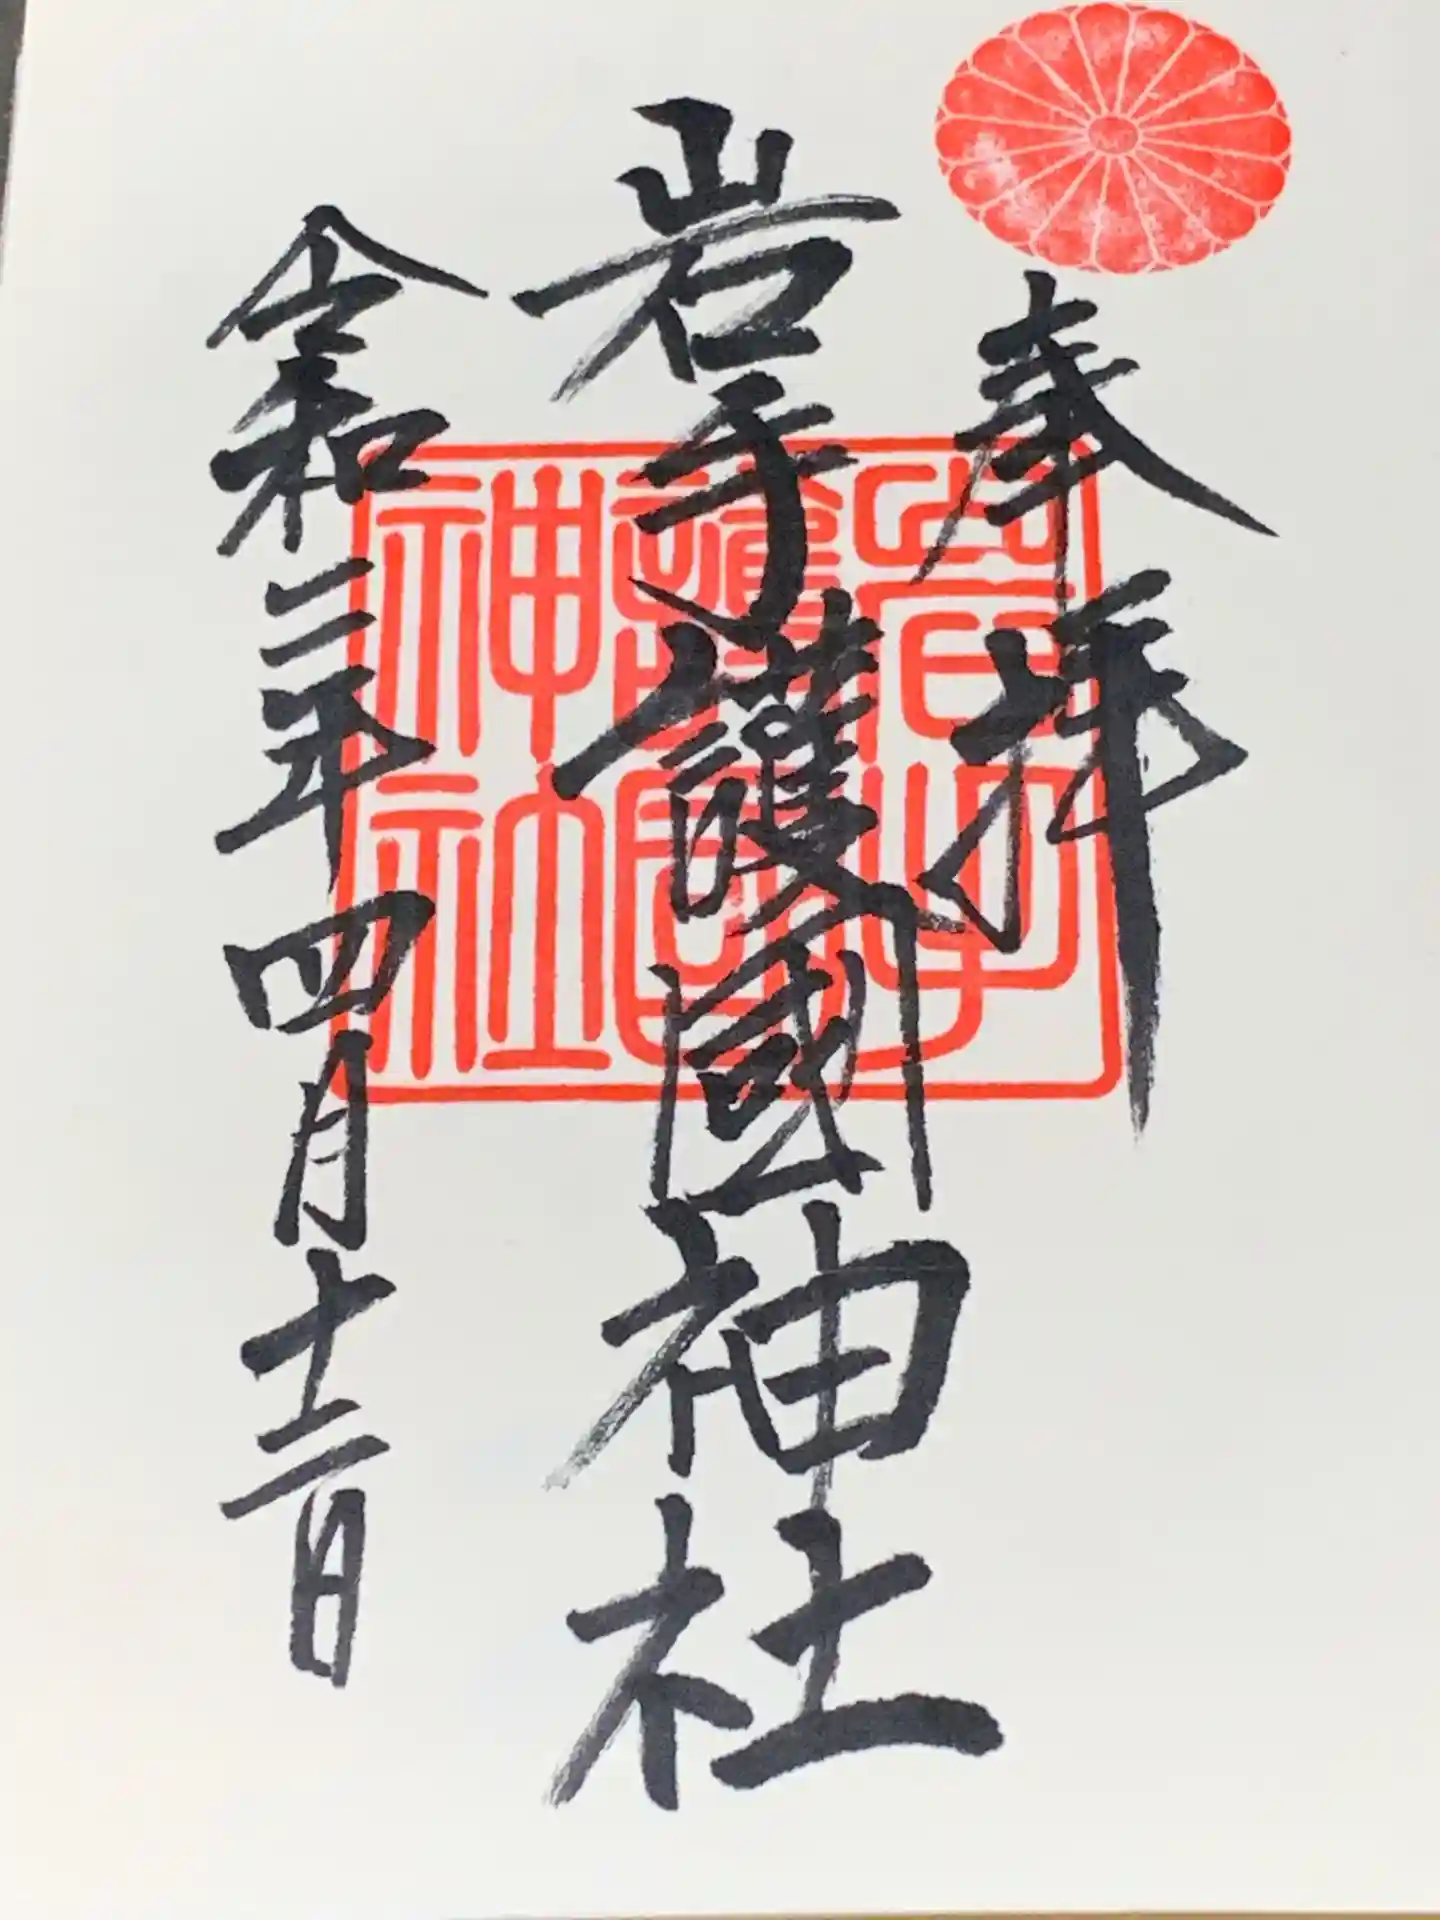 奉拝
岩手護國神社
令和三年四月十二日
岩手
護國
神社